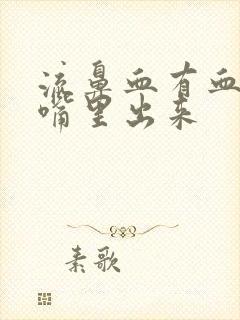 流鼻血有血
嘴里出来
素歌